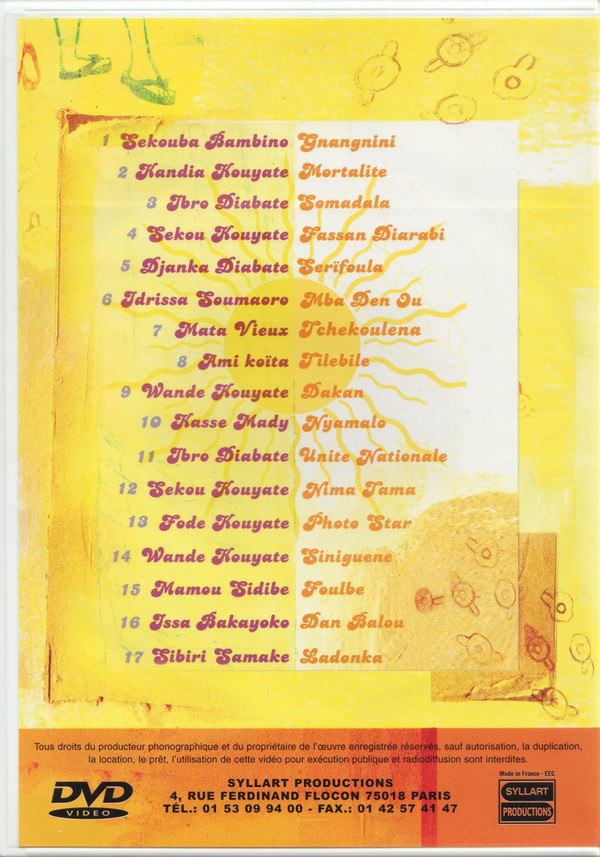 1 Sekouba Bambino Gnangnini
2 Kandia Kouyate Mortalite
3 Ibro Diabate Somadala
4 Sekou Kouyate Fassan Diarabi
5 Djanka Diabate Serïfoula
6 Idrissa Soumaoro Mba Den Ou
7 Mata Vieux Tchekoulena
8 Ami koïta Tilebile
9 Wande Kouyate Dakan
10 Kasse Mady Nyamalo
11 Ibro Diabate Unite Nationale
12 Sekou Kouyate Nima Tama
13 Fode Kouyate Photo Star
14 Wande Kouyate Siniguene
15 Mamou Sidibe Foulbe
16 Issa Bakayoko Dan Balou
17 Sibiri Samake Ladonka
Tous droits du producteur phonographique et du propriétaire de l'œuvre enregistrée réservés, sauf autorisation, la duplication,
la location, le prêt, l'utilisation de cette vidéo pour exécution publique et radiodiffusion sont interdites.
DVD
VIDEO
SYLLART PRODUCTIONS
4, RUE FERDINAND FLOCON 75018 PARIS
TÉL.: 01 53 09 94 00 - FAX.: 01 42 57 41 47
Made in France - EEC
SYLLART
PRODUCTIONS